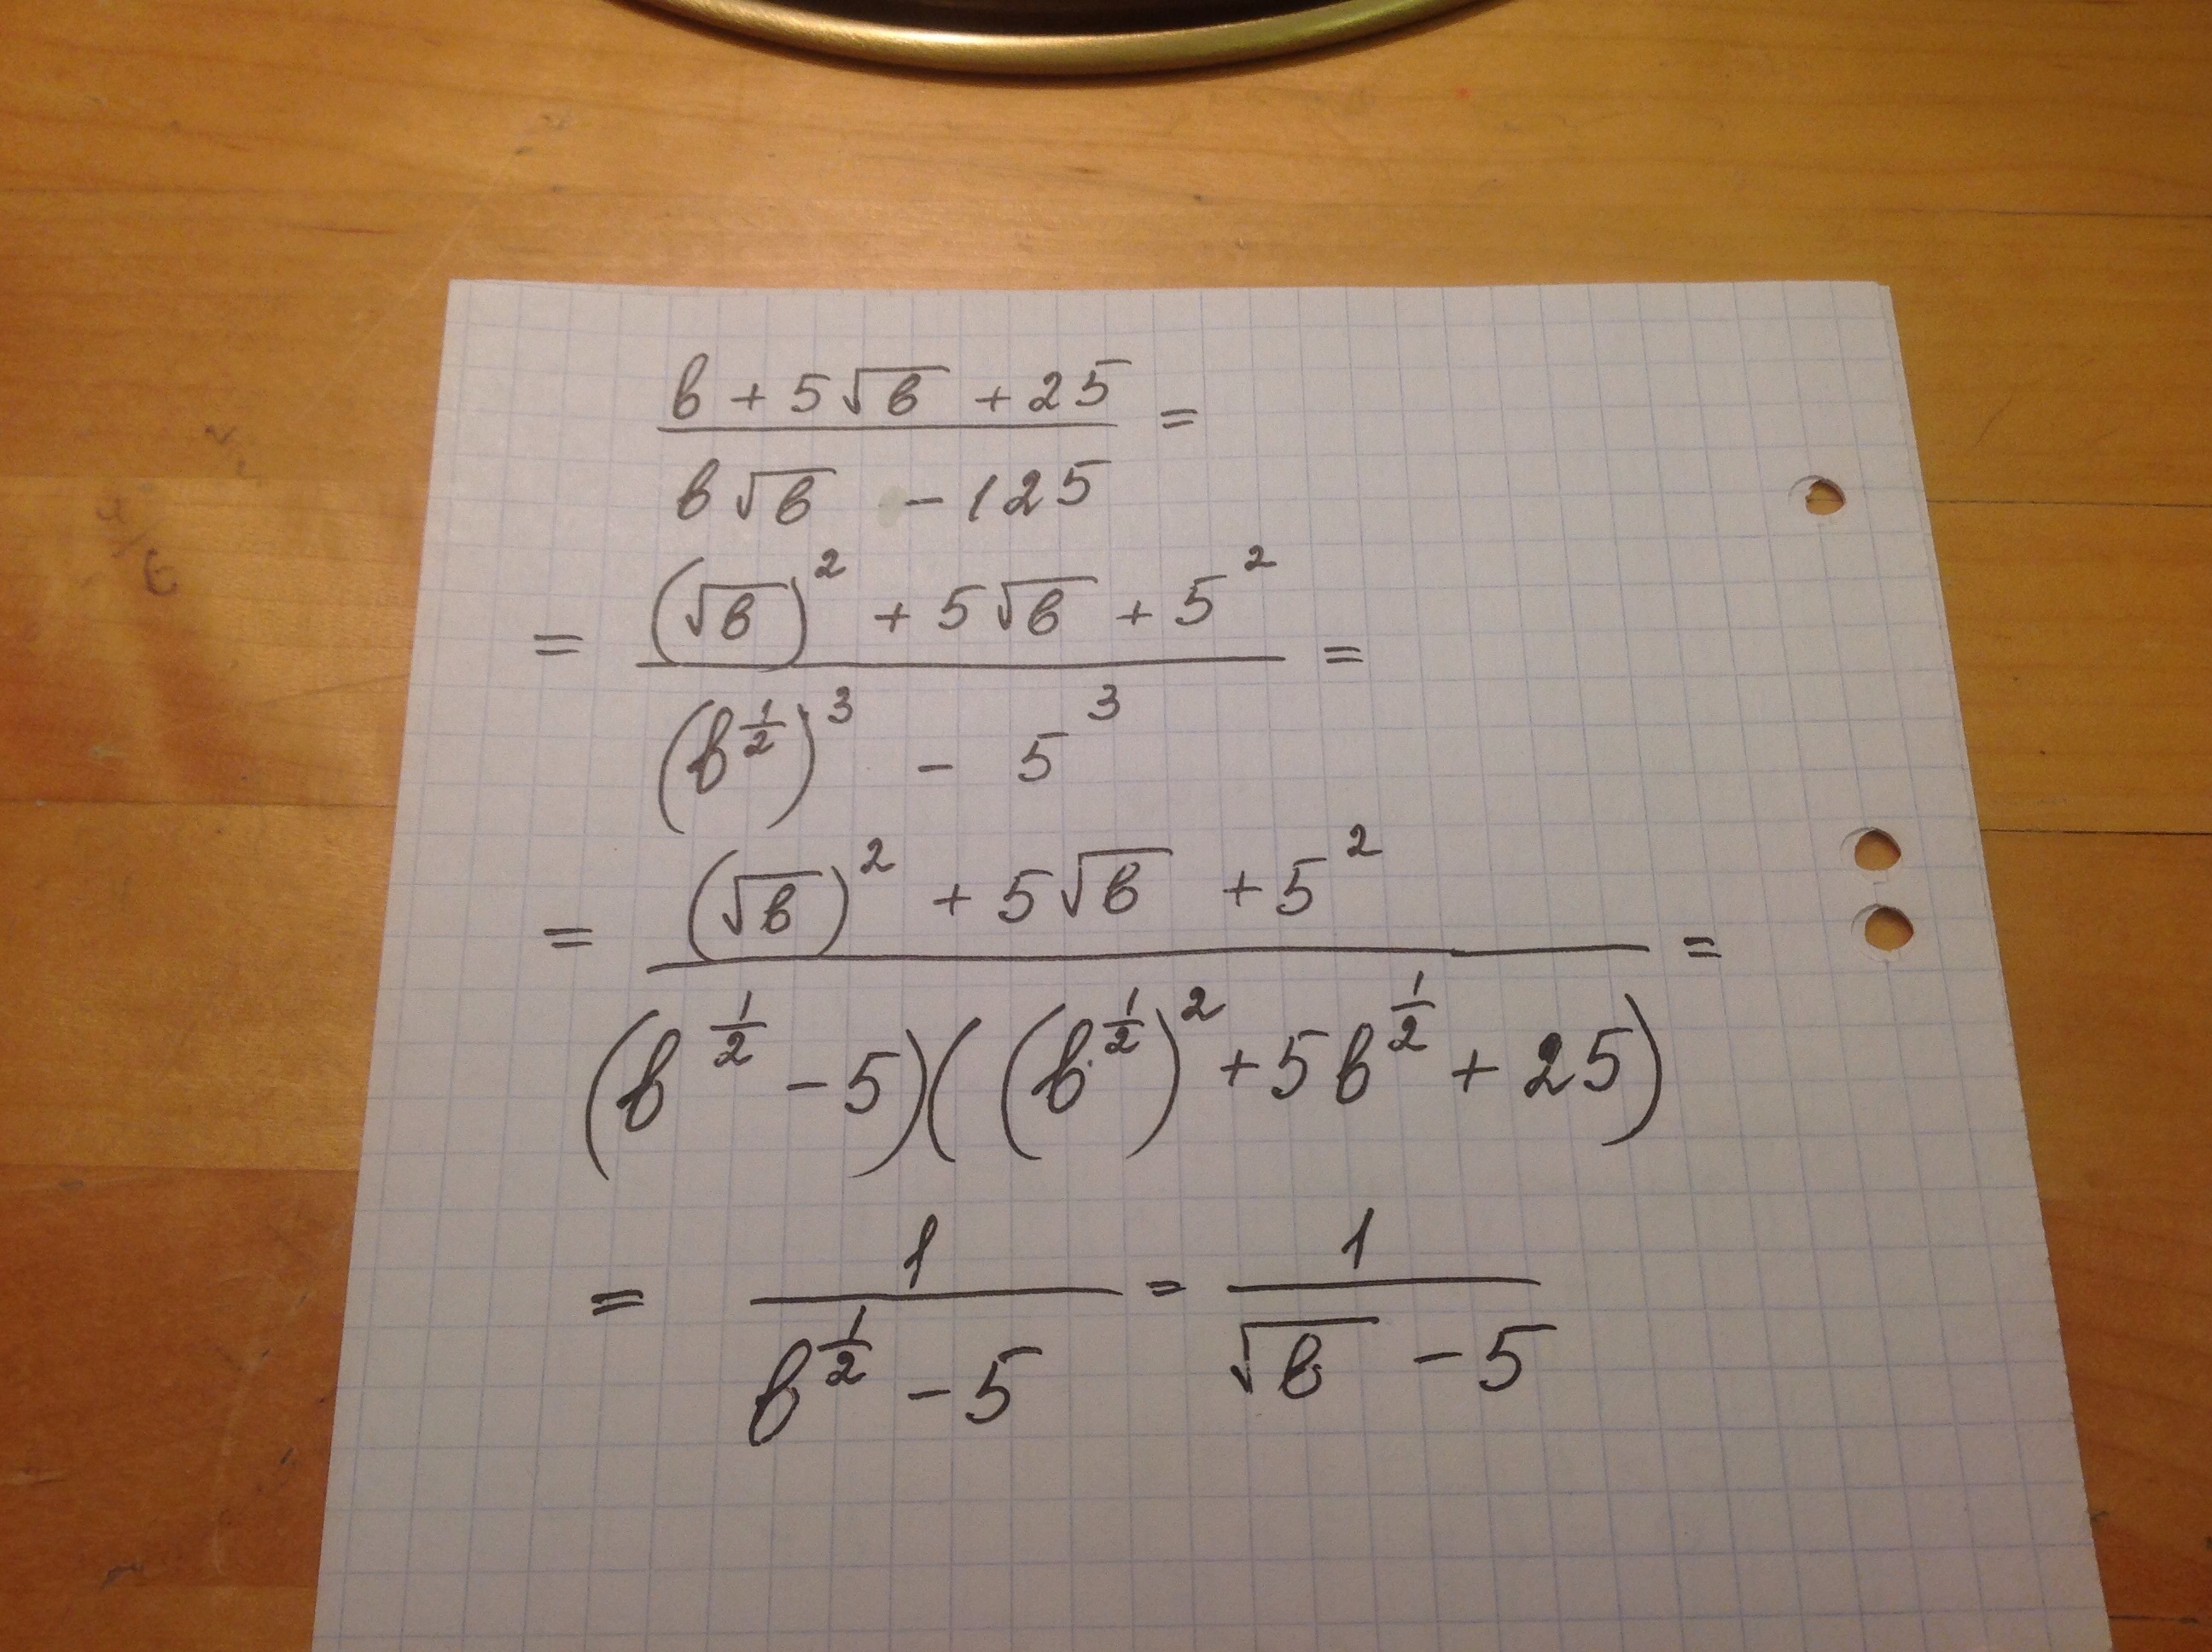 (b + 5√b + 25) / (b√b - 125) =
= ((√b)² + 5√b + 5²) / ((b^(1/2))³ - 5³) =
= ((√b)² + 5√b + 5²) / ((b^(1/2) - 5)((b^(1/2))² + 5b^(1/2) + 25)) =
= 1 / (b^(1/2) - 5) = 1 / (√b - 5)